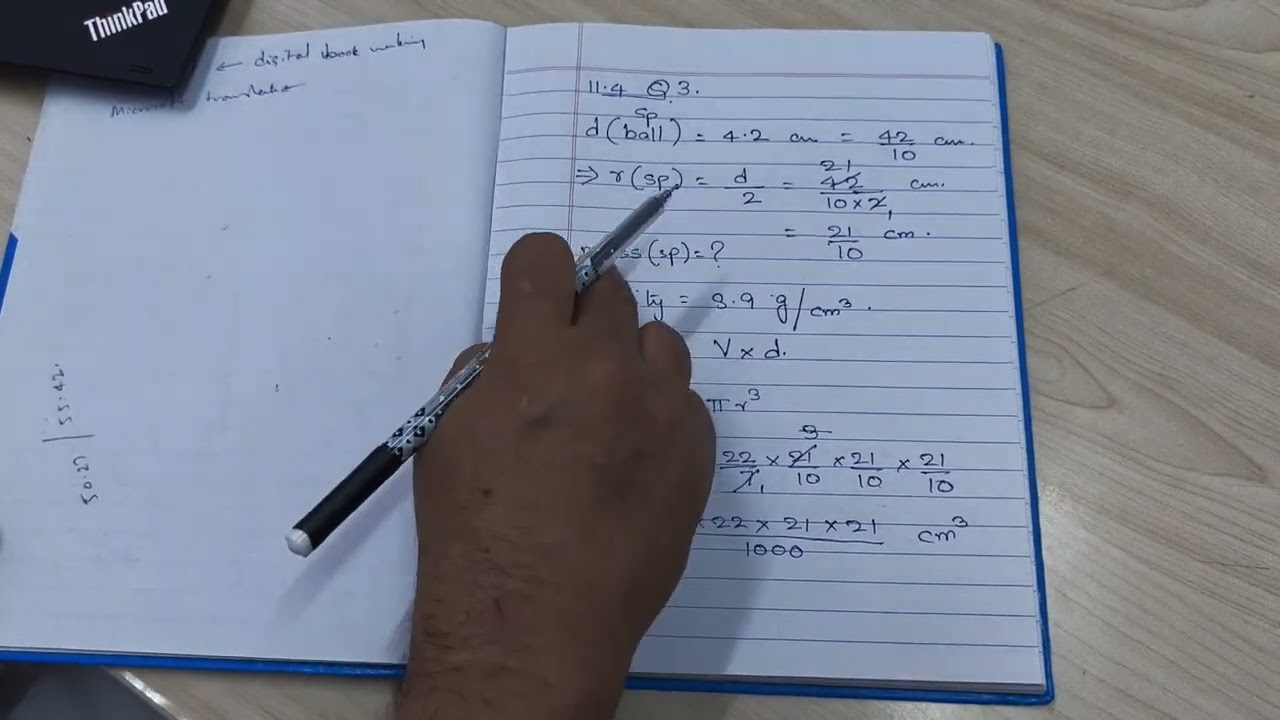 ThinkPad
← digital book making
Microsoft translator
55:42.
50:27
11.4 Q3.
sp
d(ball) = 4.2 cm = 42/10 cm.
21
⇒ r(sp) = d/2 = 42/10×2 cm.
1
= 21/10 cm.
ss(sp)=?
ity = 8.9 g/cm³.
V × d.
πr³
3
22/7 × 21/10 × 21/10 × 21/10
1
× 22 × 21 × 21 / 1000 cm³